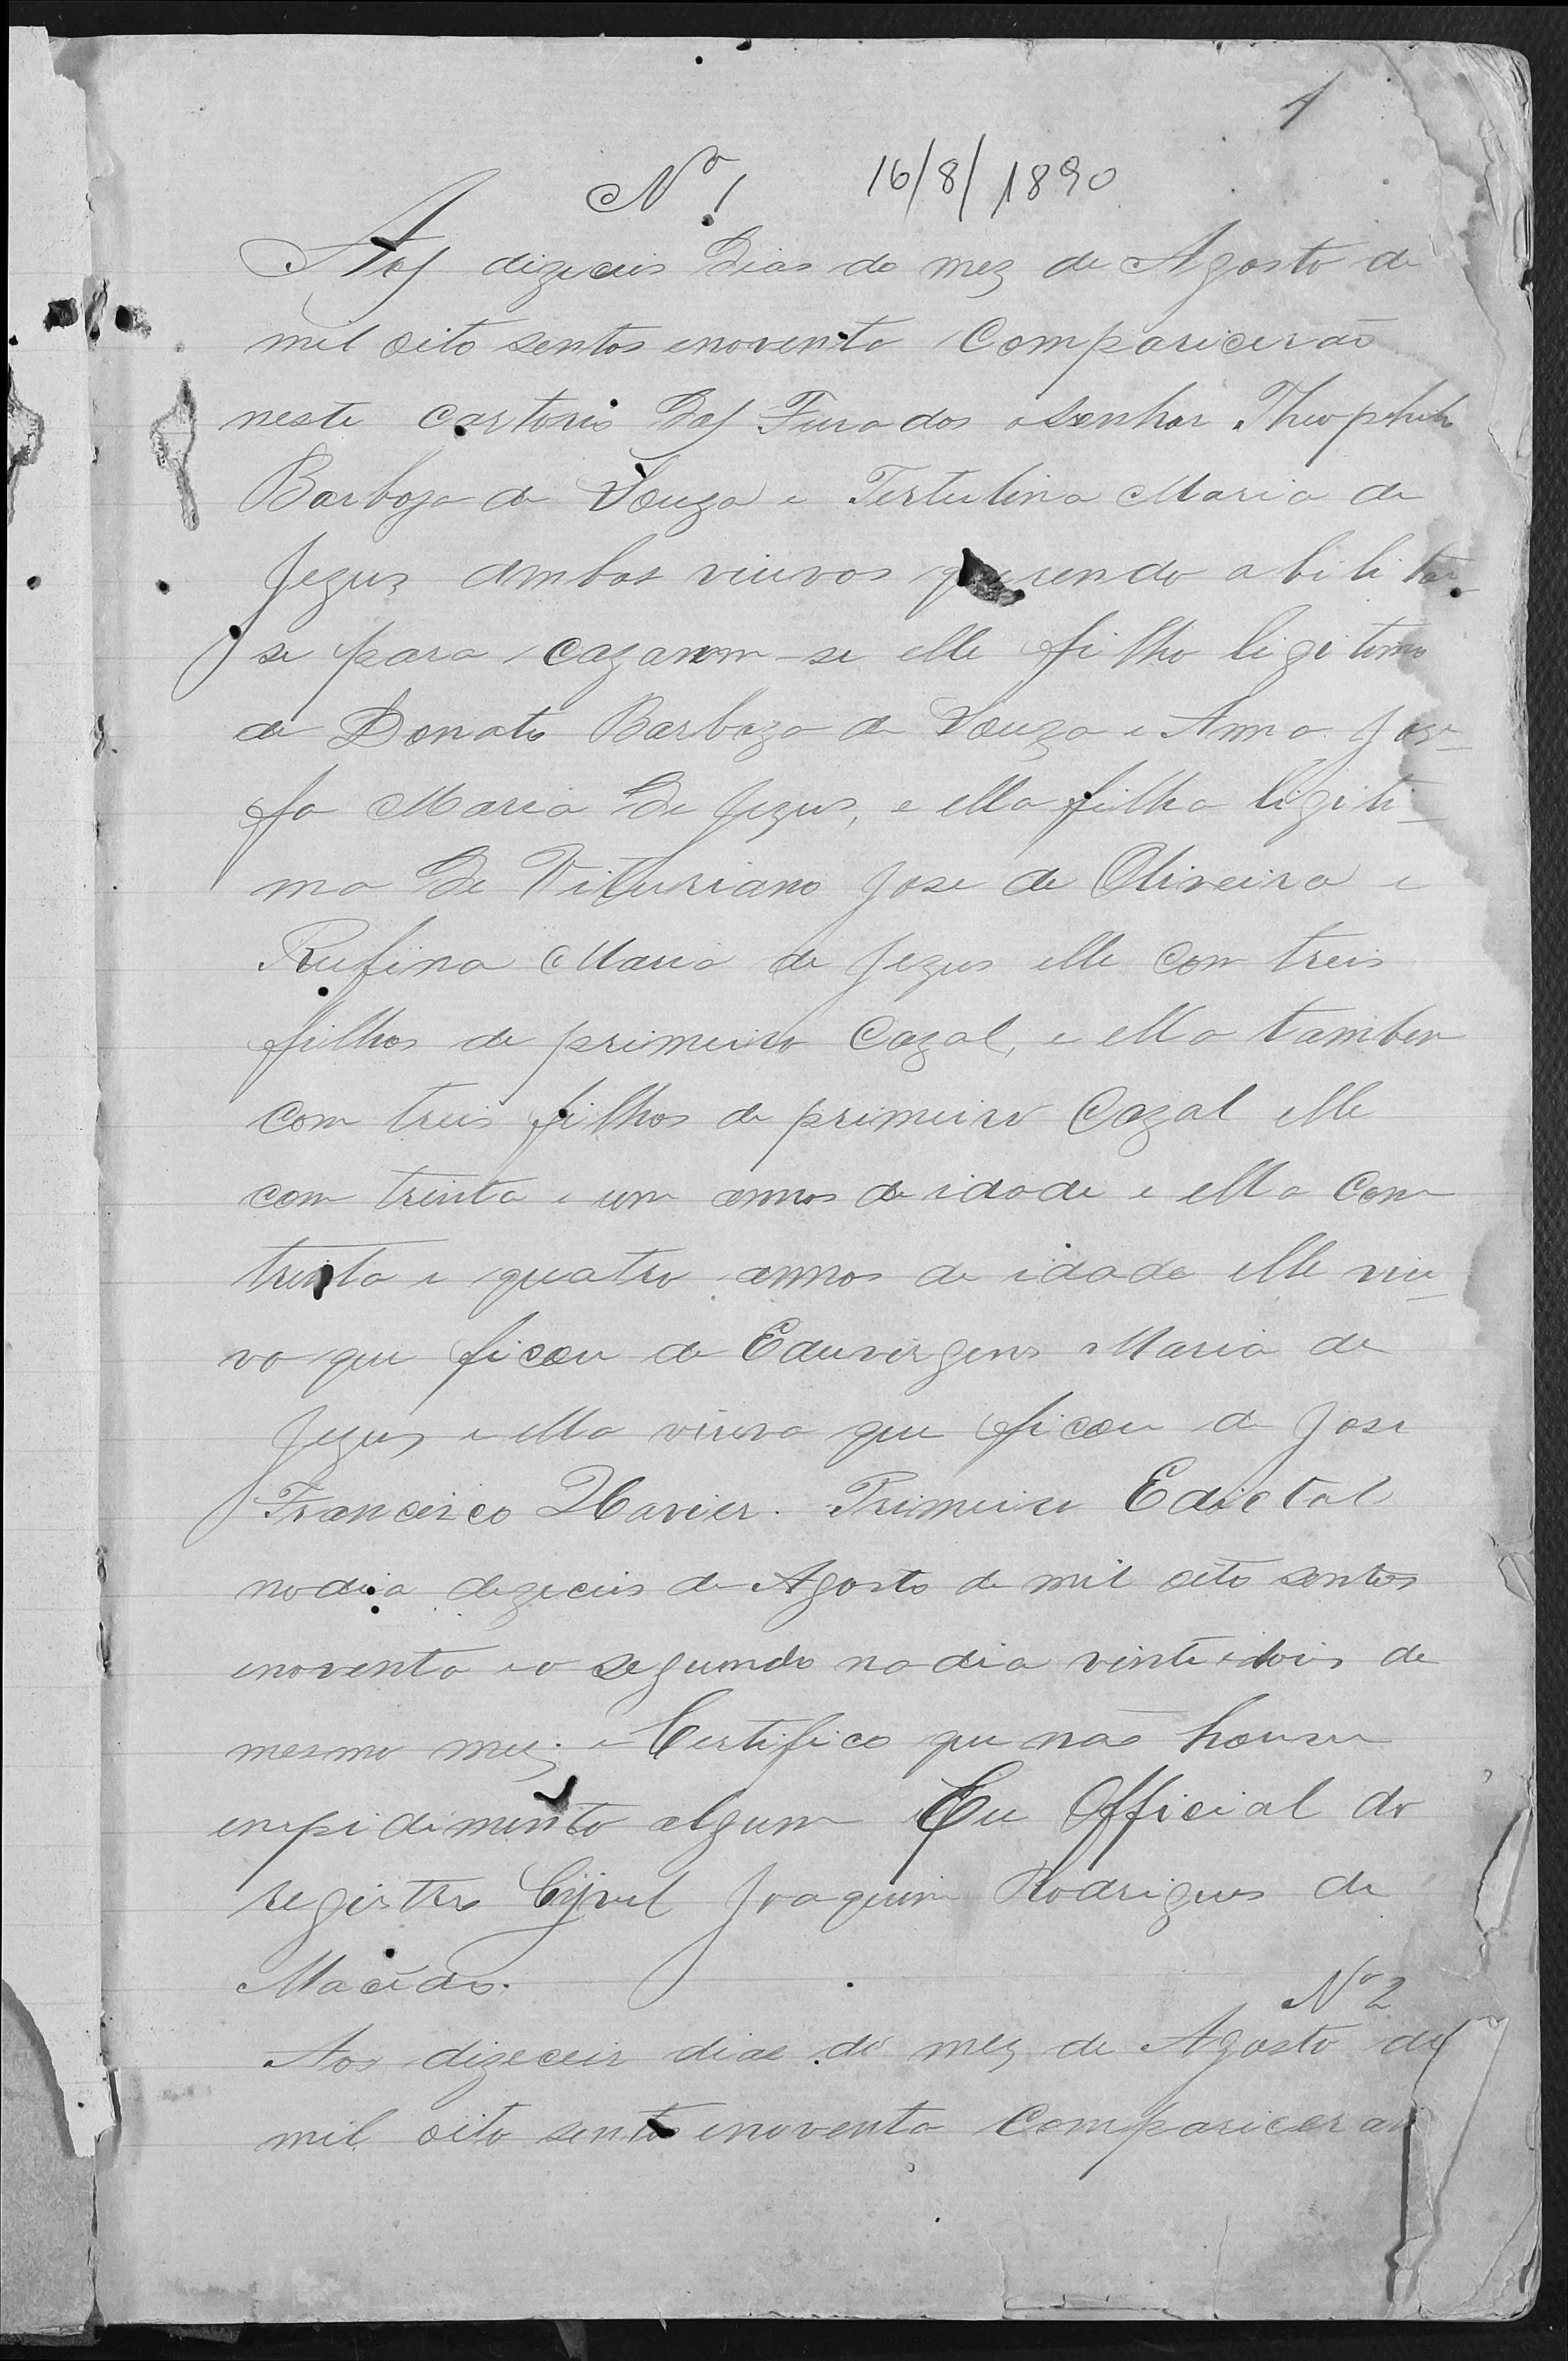 1
Nº 1 16/8/1890
Aos dizeceis dias do mez de Agosto de
mil oito sentos enoventa Comparicerão
neste cartorio dos Furados o senhor Theophilo
Barboza de Souza e Tertulina Maria de
Jezus ambos viuvos querendo abilitar-
se para cazarem-se elle filho ligitimo
de Donato Barboza de Souza e Anna Joze-
fa Maria de Jezus, e ella filha ligiti-
ma de Vituriano Jose de Oliveira e
Rufina Maria de Jezus elle com treis
filhos de primeiro Cazal, e ella tambem
com treis filhos de primeiro Cazal elle
com trinta e um annos de idade e ella com
trinta e quatro annos de idade elle viu-
vo que ficou de Eduvirgens Maria de
Jezus e ella viuva que ficou de Jose
Francisco Xavier. Primeiro Edictal
no dia dezeceis de Agosto de mil oito sentos
enoventa e o segundo no dia vinte e dois de
mesmo mez. e Certifico que não houve
empidimento algum Eu Official do
registro Cyvel Joaquim Rodrigues de
Macêdo.
Nº 2
Aos dizeceis dias do mez de Agosto de
mil oito sentos enoventa Compariceram